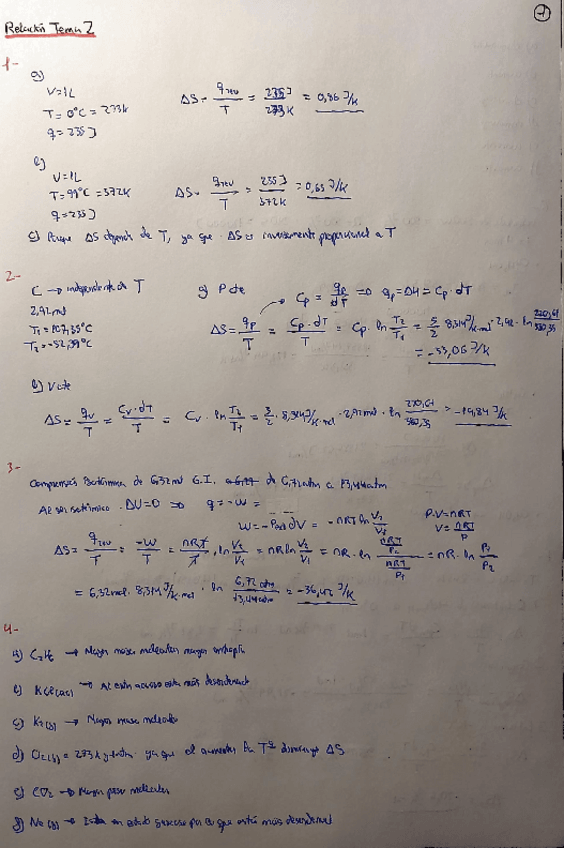 1
Relación Tema 2
1-
a)
V=1L
T=0°C=273K
q=235J
ΔS = qrev/T = 235J/273K = 0,86 J/K
b)
V=1L
T=99°C=372K
q=235J
ΔS = qrev/T = 235J/372K = 0,63 J/K
c) Porque ΔS depende de T, ya que ΔS es inversamente proporcional a T
2-
C → independiente de T
2,92 mol
T1=107,35°C
T2=-52,39°C
a) P cte
Cp = qp/dT ⇒ qp=ΔH=Cp·dT
ΔS = qp/T = Cp·dT/T = Cp·ln T2/T1 = 5/2 8,314 J/K·mol · 2,92 · ln 220,61/380,35
= -33,06 J/K
b) V cte
ΔS = qv/T = Cv·dT/T = Cv·ln T2/T1 = 3/2 · 8,314 J/K·mol · 2,92 mol · ln 220,61/380,35 = -19,84 J/K
3-
Compresión isotérmica de 6,32 mol G.I. de 6,72 atm a 13,44 atm
Al ser isotérmico ΔU=0 ⇒ q=-w =
w=-Pext dV = -nRT ln V2/V1
P·V=nRT
V=nRT/P
ΔS = qrev/T = -w/T = nRT/T · ln V2/V1 = nR ln V2/V1 = nR·ln (nRT/P2)/(nRT/P1) = nR·ln P1/P2
= 6,32 mol · 8,314 J/K·mol · ln 6,72 atm/13,44 atm = -36,42 J/K
4-
a) C2H6 → Mayor masa molecular mayor entropía
b) KCl(ac) → Al estar acuoso está más desordenado
c) → Mayor masa molecular
d) O2(g) = 273K ya que al aumentar la Tª disminuye ΔS
e) CO2 → Mayor peso molecular
f) Ne(g) → Está en estado gaseoso por lo que está más desordenado